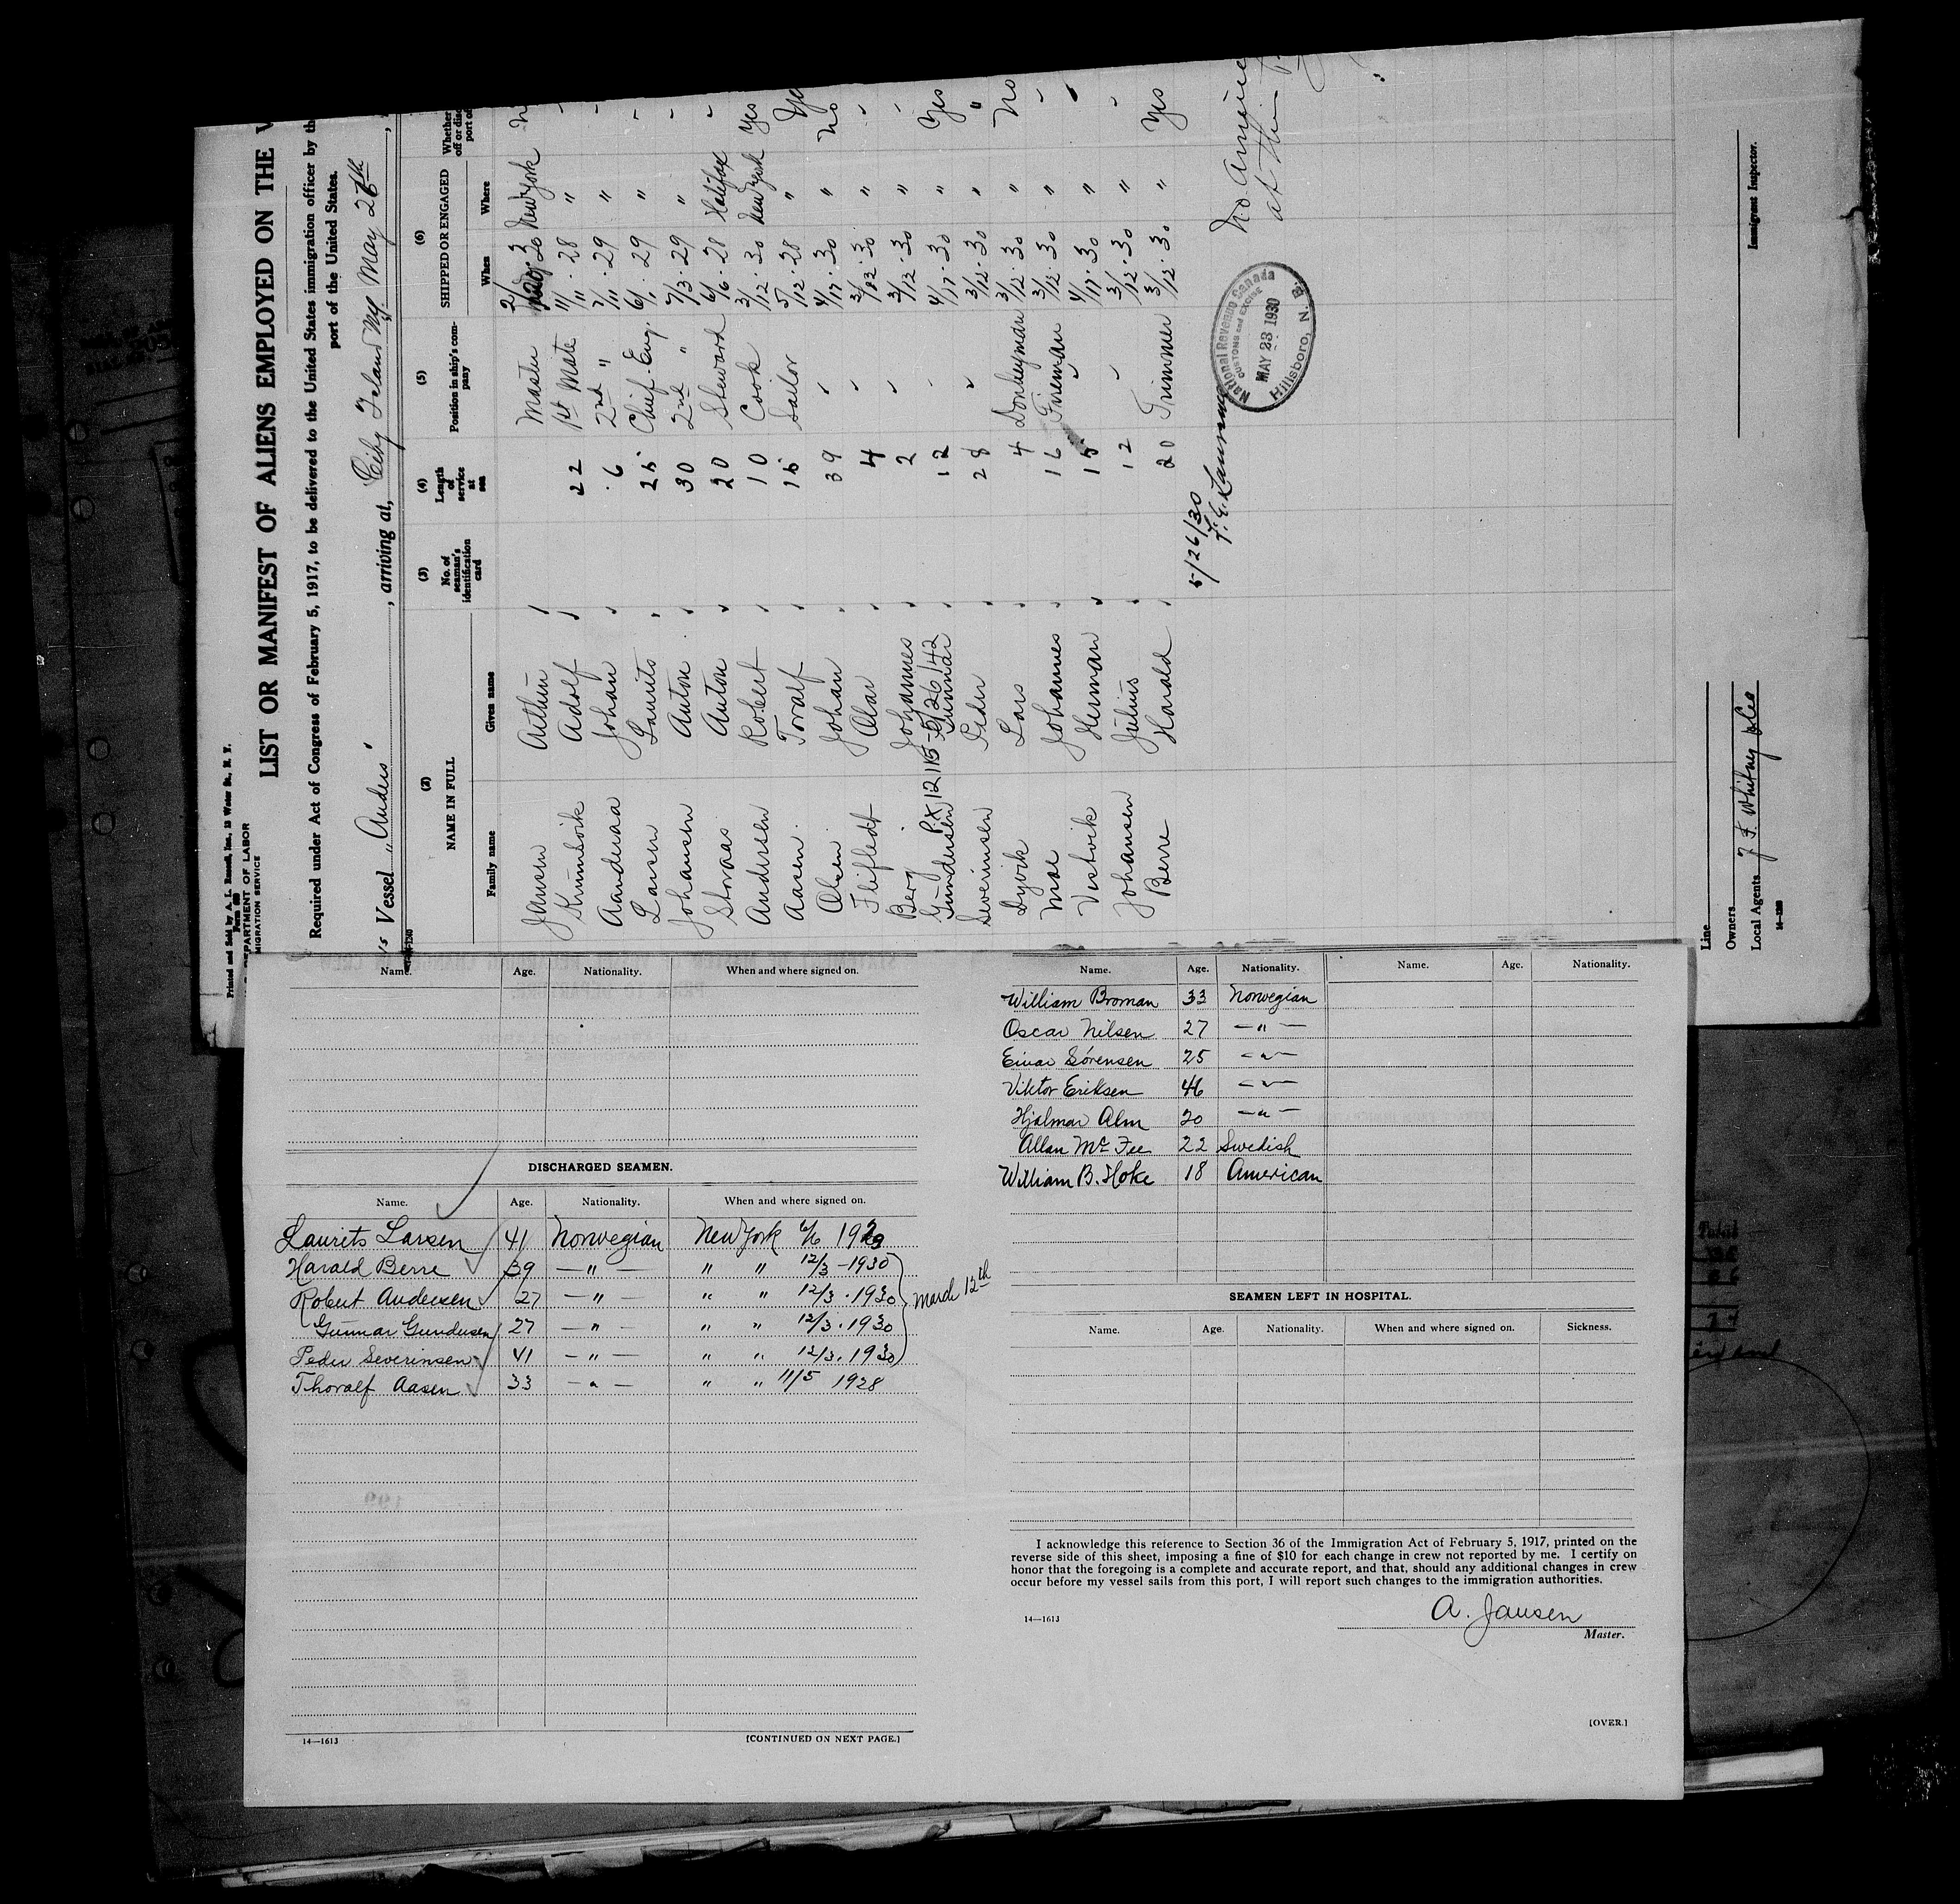 Printed and Sold by A. L. Russell, Inc., 12 Water St., N. Y.
DEPARTMENT OF LABOR
MIGRATION SERVICE
LIST OR MANIFEST OF ALIENS EMPLOYED ON THE
Required under Act of Congress of February 5, 1917, to be delivered to the United States immigration officer by th
port of the United States.
Vessel "Anders", arriving at, City Island NY. May 26th
(2) NAME IN FULL (3) No. of seaman's identification card (4) Length of service at sea (5) Position in ship's company (6) SHIPPED OR ENGAGED
Family name Given name When Where
Jansen Arthur Master New York
Krumsvik Adolf 22 1st Mate 11/11 . 28 "
Aanderaa Johan 6 2nd " 7/11 . 29 "
Larsen Laurits 25 Chief Eng. 6/1 . 29 "
Johansen Anton 30 2nd " 7/3 . 29 "
Anton 20 Steward 6/6 . 28 Halifax
Andersen Robert 10 Cook 3/12 . 30 New York Yes
Aasen Toralf 15 Sailor 5/12 . 28 " Yes
Olsen Johan 39 4/17 . 30 " No
Olav 4 "
Berg Johannes 2 3/12 . 30 "
Gundersen Gunnar 12 4/17 . 30 " Yes
Severinsen Peder 28 3/12 . 30 " "
Lars 4 Donkeyman 3/12 . 30 " No
Moe Johannes 16 Fireman 3/12 . 30 "
Vestvik Herman 15 4/17 . 30 "
Johansen Julius 12 3/12 . 30 "
Berre Harald 20 Trimmer 3/12 . 30 " Yes
5/26/30
National Revenue Canada
CUSTOMS and EXCISE
MAY 23 1930
Hillsboro, N. B.
Line
Owners
Local Agents J F Whitney & Co
Immigrant Inspector.
Name. Age. Nationality. When and where signed on.
DISCHARGED SEAMEN.
Name. Age. Nationality. When and where signed on.
Laurits Larsen 41 Norwegian New York 6/6 1929
Harald Berre 39 — " — " " 12/3 - 1930
Robert Andersen 27 — " — " " 12/3 . 1930 March 12th
Gunnar Gundersen 27 — " — " " 12/3 . 1930
Peder Severinsen 41 — " — " " 12/3 . 1930
Thoralf Aasen 33 — " — " " 11/5 1928
14—1613
[CONTINUED ON NEXT PAGE.]
Name. Age. Nationality. Name. Age. Nationality.
William Broman 33 Norwegian
Oscar Nilsen 27 — " —
Einar Sörensen 25 — " —
Viktor Eriksen 46 — " —
Hjalmar Alm 20 — " —
Allan Mc Fee 22 Swedish
William B. Hoke 18 American
SEAMEN LEFT IN HOSPITAL.
Name. Age. Nationality. When and where signed on. Sickness.
I acknowledge this reference to Section 36 of the Immigration Act of February 5, 1917, printed on the
reverse side of this sheet, imposing a fine of $10 for each change in crew not reported by me. I certify on
honor that the foregoing is a complete and accurate report, and that, should any additional changes in crew
occur before my vessel sails from this port, I will report such changes to the immigration authorities.
A. Jansen
14—1613
Master.
[OVER.]